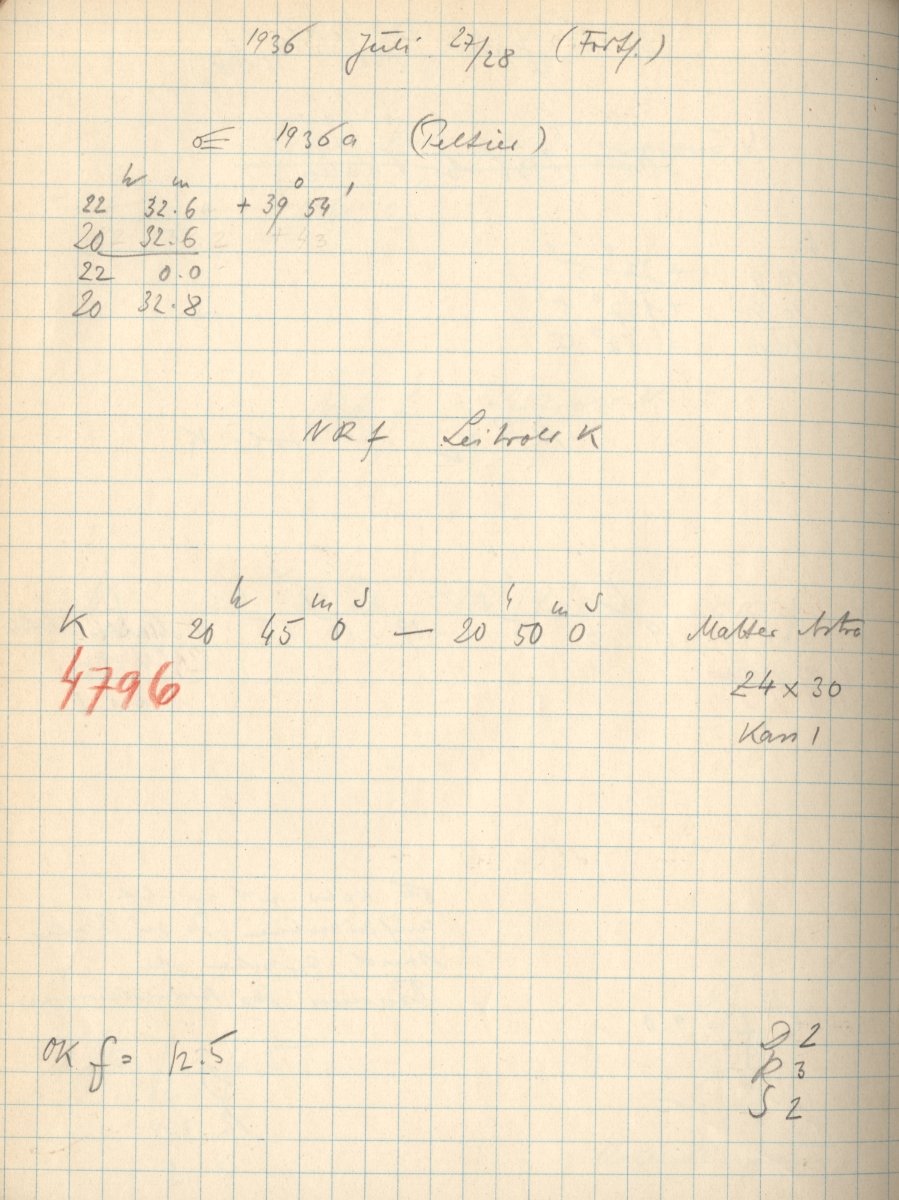 1936 Juli 27/28 (Forts.)
☄ 1936a (Peltier)
h m ° '
22 32.6 + 39 54
20 32.6
22 0.0
20 32.8
NR f Leitrohr K
h m s h m s
K 20 45 0 — 20 50 0 Matter Astro
4796
24 x 30
Kass 1
OK f = 12.5
D 2
R 3
S 2